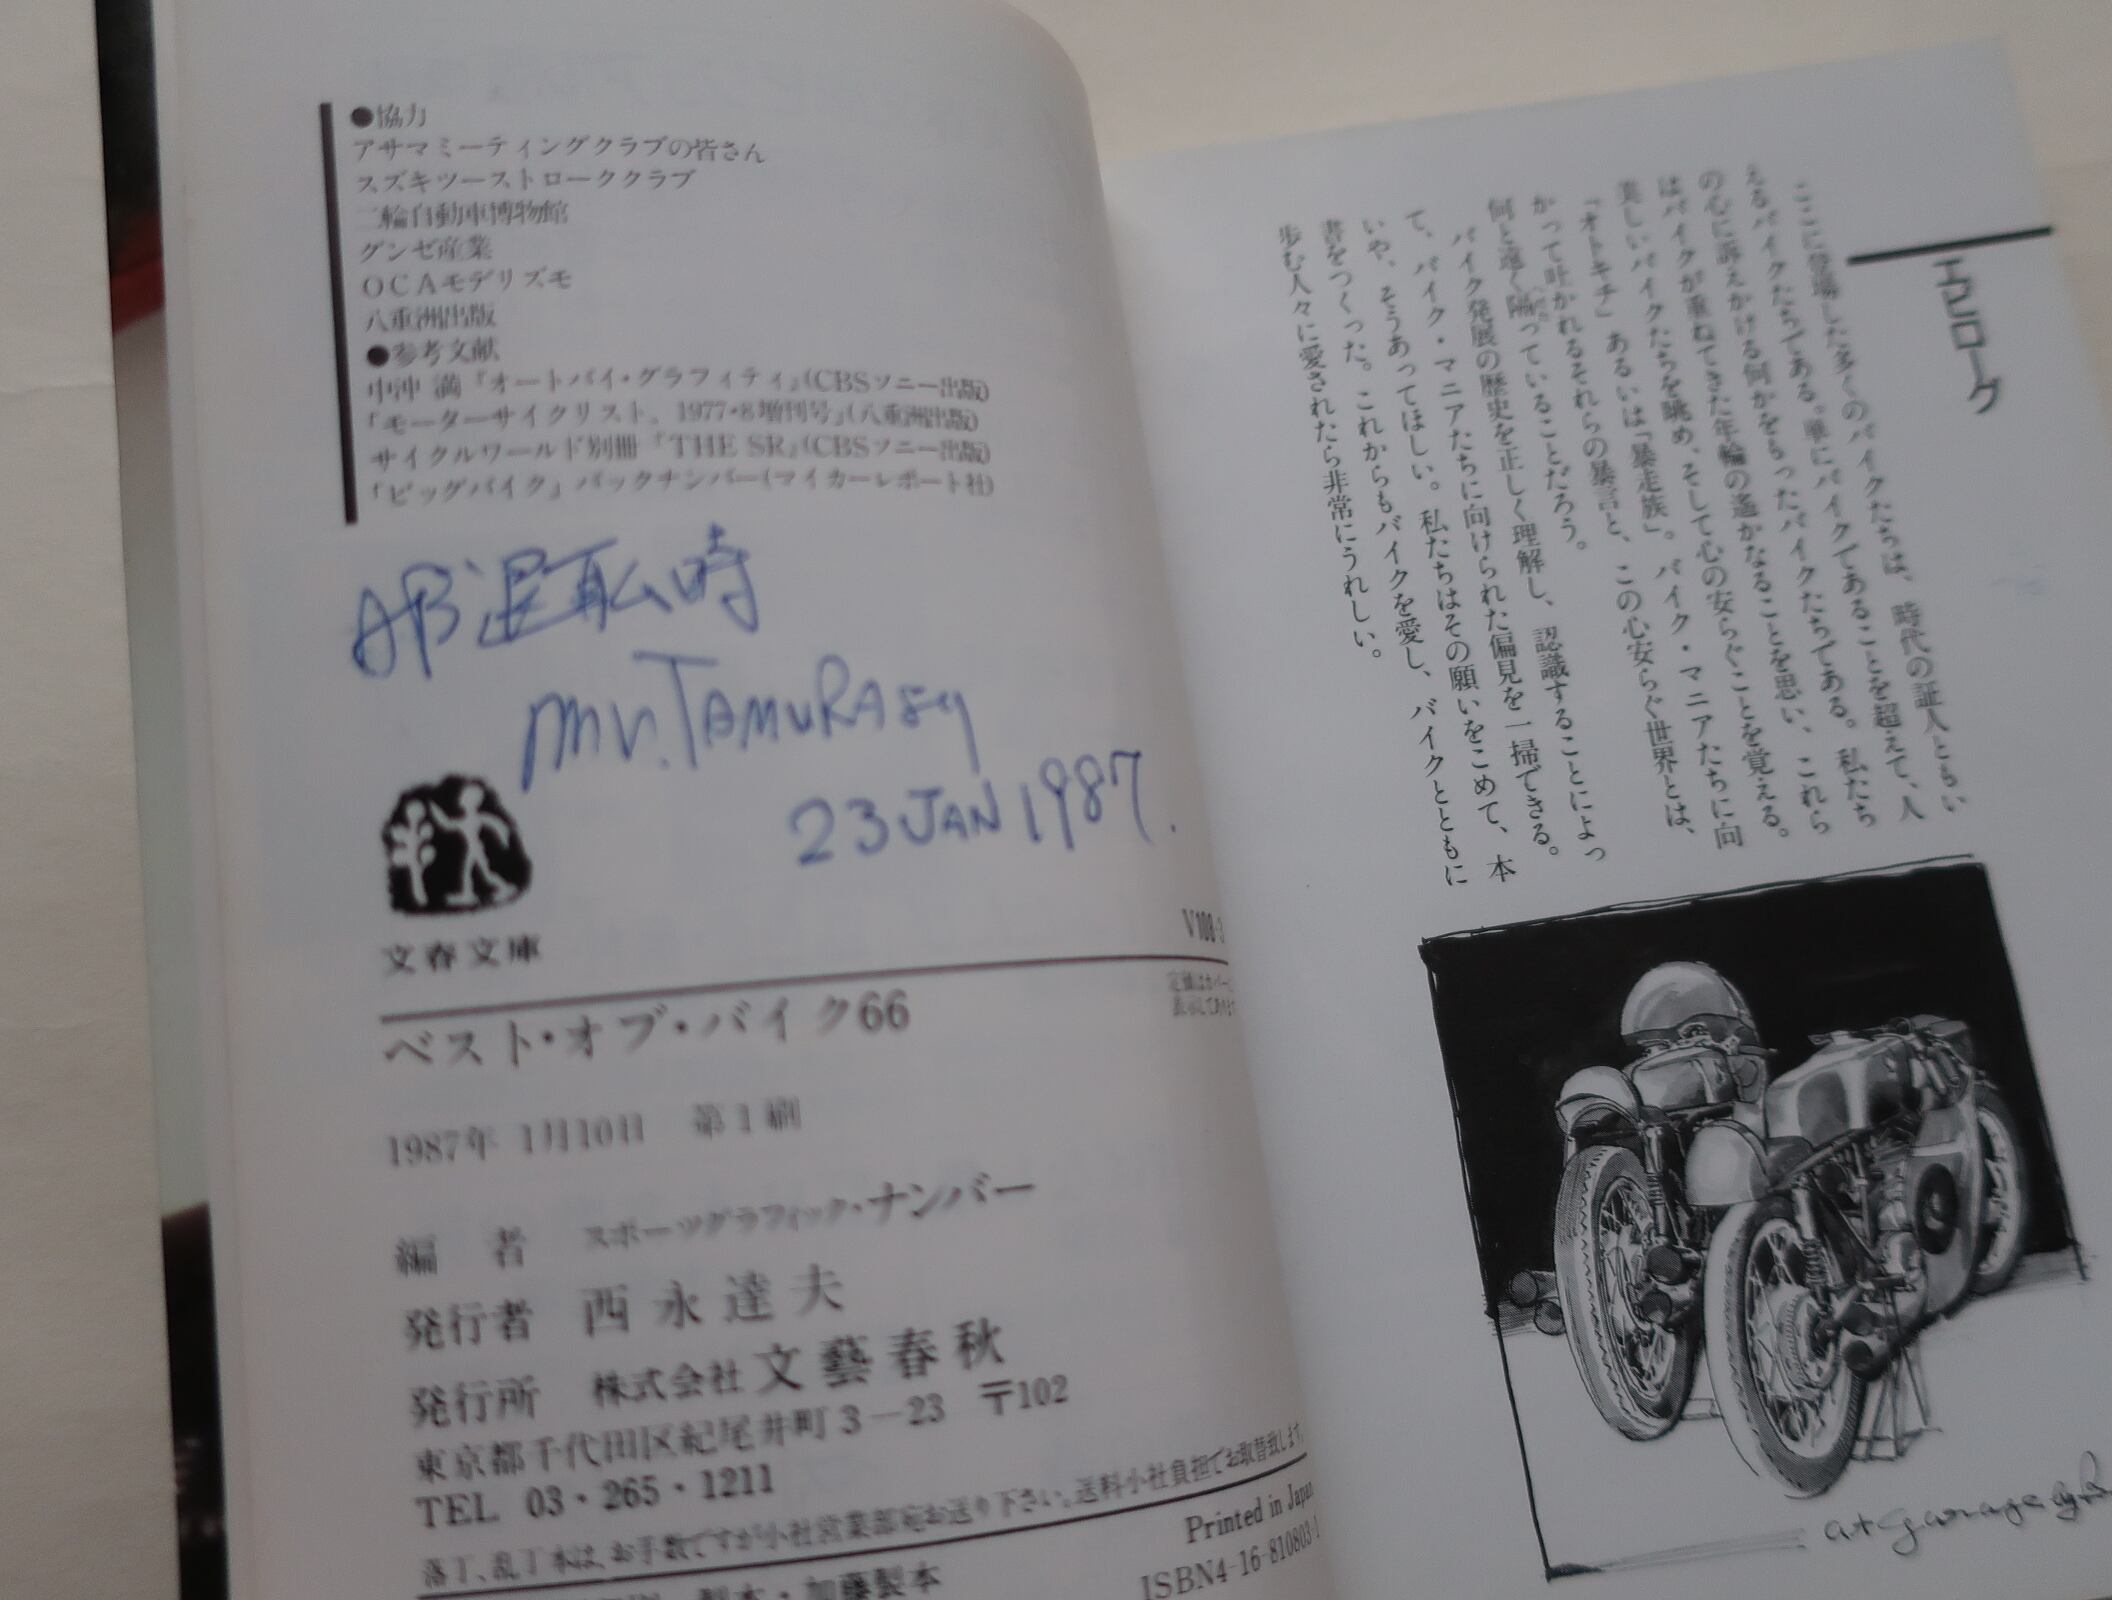 ●協力
アサマミーティングクラブの皆さん
スズキツーストローククラブ
二輪自動車博物館
グンゼ産業
OCAモデリズモ
八重洲出版
●参考文献
中沖 満『オートバイ・グラフィティ』(CBSソニー出版)
「モーターサイクリスト、1977・8増刊号」(八重洲出版)
サイクルワールド別冊『THE SR』(CBSソニー出版)
「ビッグバイク」バックナンバー(マイカーレポート社)
時
Mr. TAMURA
23 JAN 1987.
文春文庫
V100-3
定価はカバーに
表示してあります
ベスト・オブ・バイク66
1987年 1月10日 第1刷
編 者 スポーツグラフィック・ナンバー
発行者 西永達夫
発行所 株式会社 文藝春秋
東京都千代田区紀尾井町3-23 〒102
TEL 03・265・1211
落丁、乱丁本は、お手数ですが小社営業部宛お送り下さい。送料小社負担でお取替致します。
Printed in Japan
ISBN4-16-810803-1
製本・加藤製本
エピローグ
ここに登場した多くのバイクたちは、時代の証人ともい
えるバイクたちである。単にバイクであることを超えて、人
の心に訴えかける何かをもったバイクたちである。私たち
はバイクが重ねてきた年輪の遙かなることを思い、これら
美しいバイクたちを眺め、そして心の安らぐことを覚える。
「オトキチ」あるいは「暴走族」。バイク・マニアたちに向
かって吐かれるそれらの暴言と、この心安らぐ世界とは、
何と遠く隔っていることだろう。
バイク発展の歴史を正しく理解し、認識することによっ
て、バイク・マニアたちに向けられた偏見を一掃できる。
いや、そうあってほしい。私たちはその願いをこめて、本
書をつくった。これからもバイクを愛し、バイクとともに
歩む人々に愛されたら非常にうれしい。
at garage